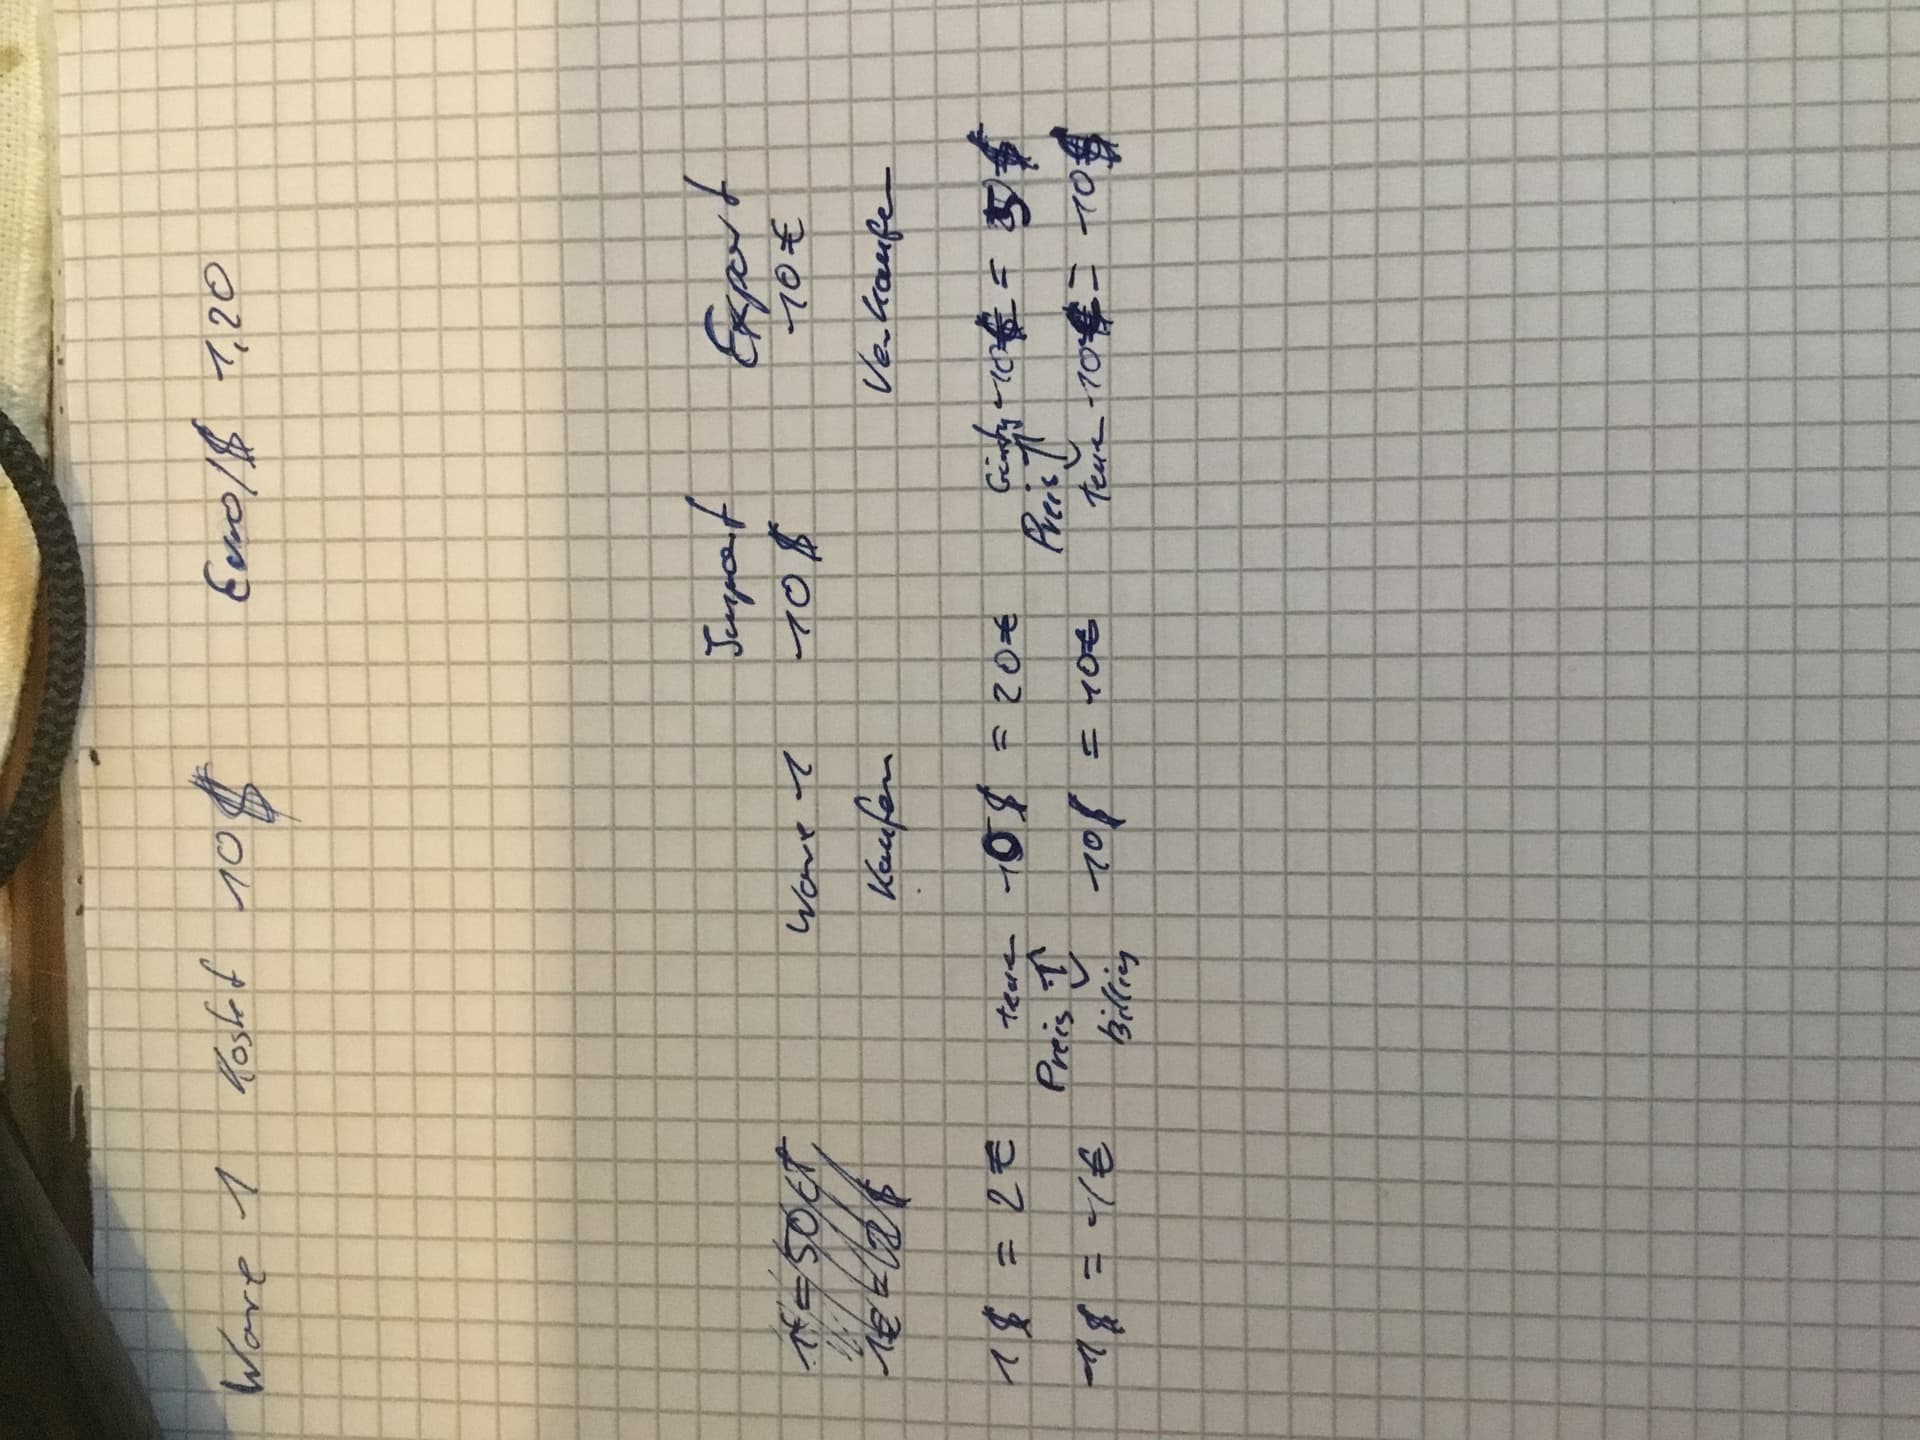 Ware 1 Kostet 10$ Euro/$ 1,20
Import Export
Ware 1 10$ 10€
1€ = 50ct
1€ = 2$
Kaufen Verkaufen
1$ = 2€ teuer 10$ = 20€ Günstig 10€ = 5$
Preis ↑ Preis ↑
1$ = 1€ billig 10$ = 10€ teuer 10€ = 10$